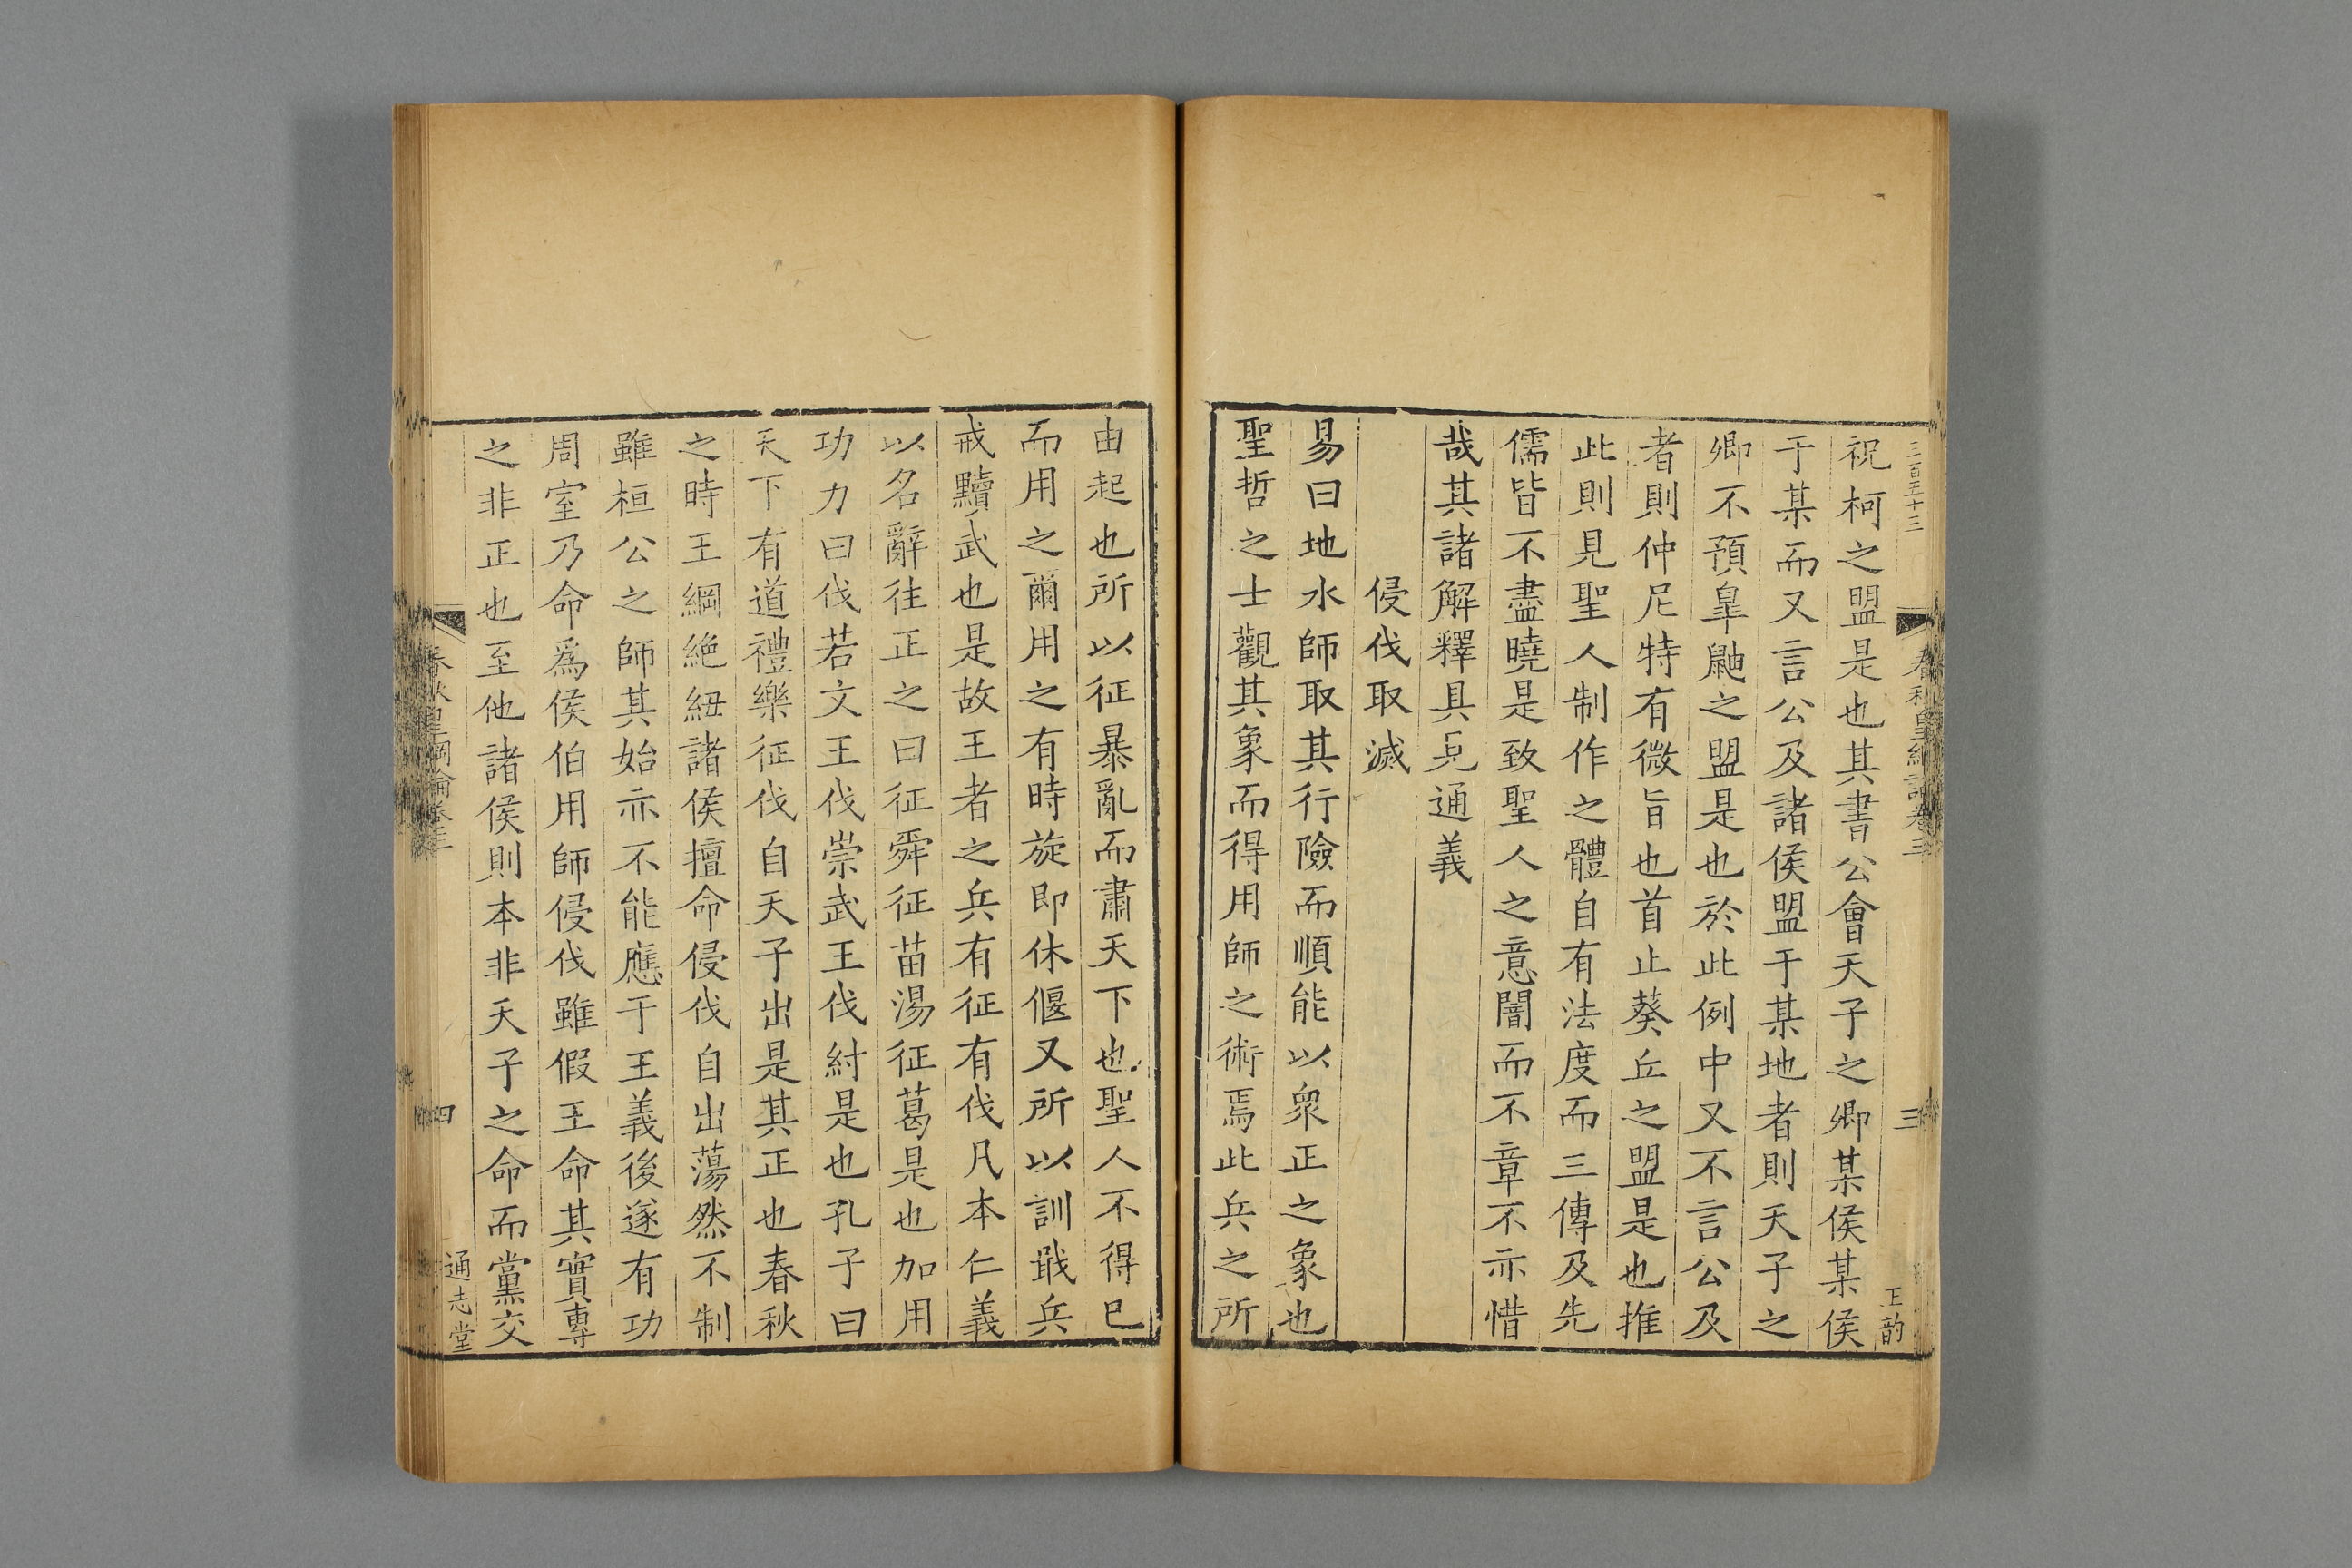 三百五十三
春秋皇綱論卷三
三
王韵
祝柯之盟是也其書公會天子之卿某侯某侯
于某而又言公及諸侯盟于某地者則天子之
卿不預皐鼬之盟是也於此例中又不言公及
者則仲尼特有微旨也首止葵丘之盟是也推
此則見聖人制作之體自有法度而三傳及先
儒皆不盡曉是致聖人之意闇而不章不亦惜
哉其諸解釋具見通義
侵伐取滅
易曰地水師取其行險而順能以衆正之象也
聖哲之士觀其象而得用師之術焉此兵之所
由起也所以征暴亂而肅天下也聖人不得已
而用之爾用之有時旋即休偃又所以訓戢兵
戒黷武也是故王者之兵有征有伐凡本仁義
以名辭往正之曰征舜征苗湯征葛是也加用
功力曰伐若文王伐崇武王伐紂是也孔子曰
天下有道禮樂征伐自天子出是其正也春秋
之時王綱絶紐諸侯擅命侵伐自出蕩然不制
雖桓公之師其始亦不能應于王義後遂有功
周室乃命爲侯伯用師侵伐雖假王命其實專
之非正也至他諸侯則本非天子之命而黨交
春秋皇綱論卷三
四
通志堂